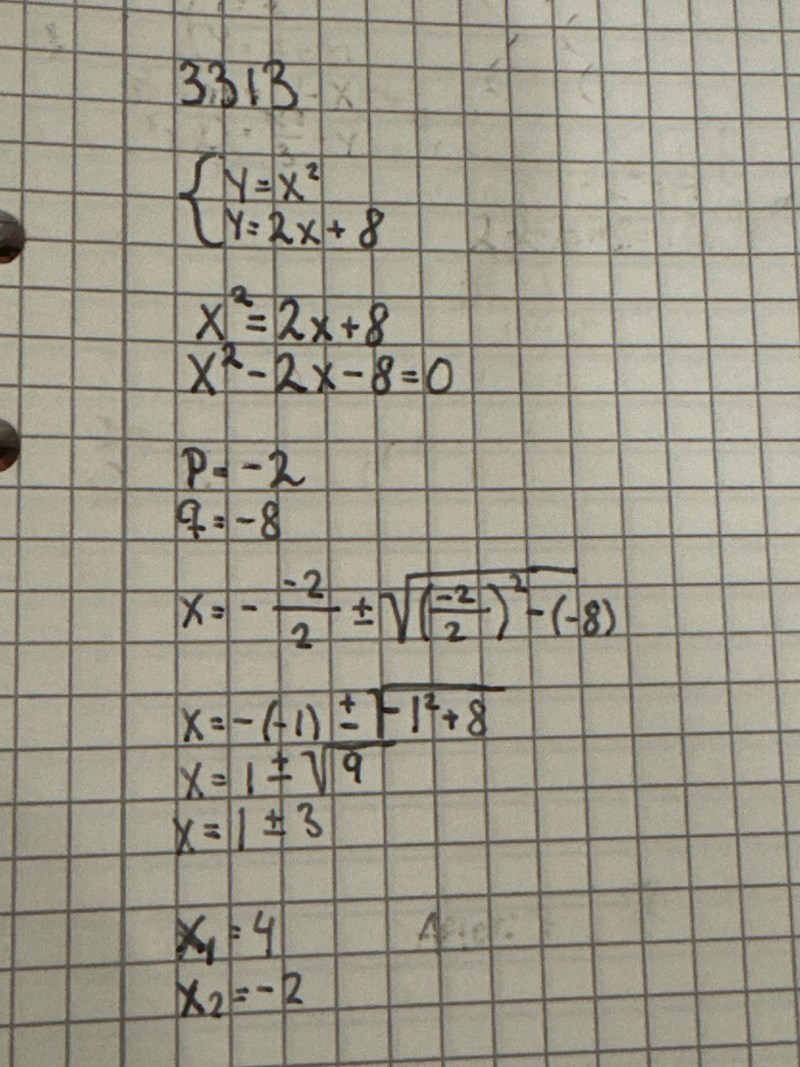 3313
{ y = x²
y = 2x + 8
x² = 2x + 8
x² - 2x - 8 = 0
p = -2
q = -8
x = - -2/2 ± √(-2/2)² - (-8)
x = -(-1) ± √-1² + 8
x = 1 ± √9
x = 1 ± 3
x₁ = 4
x₂ = -2